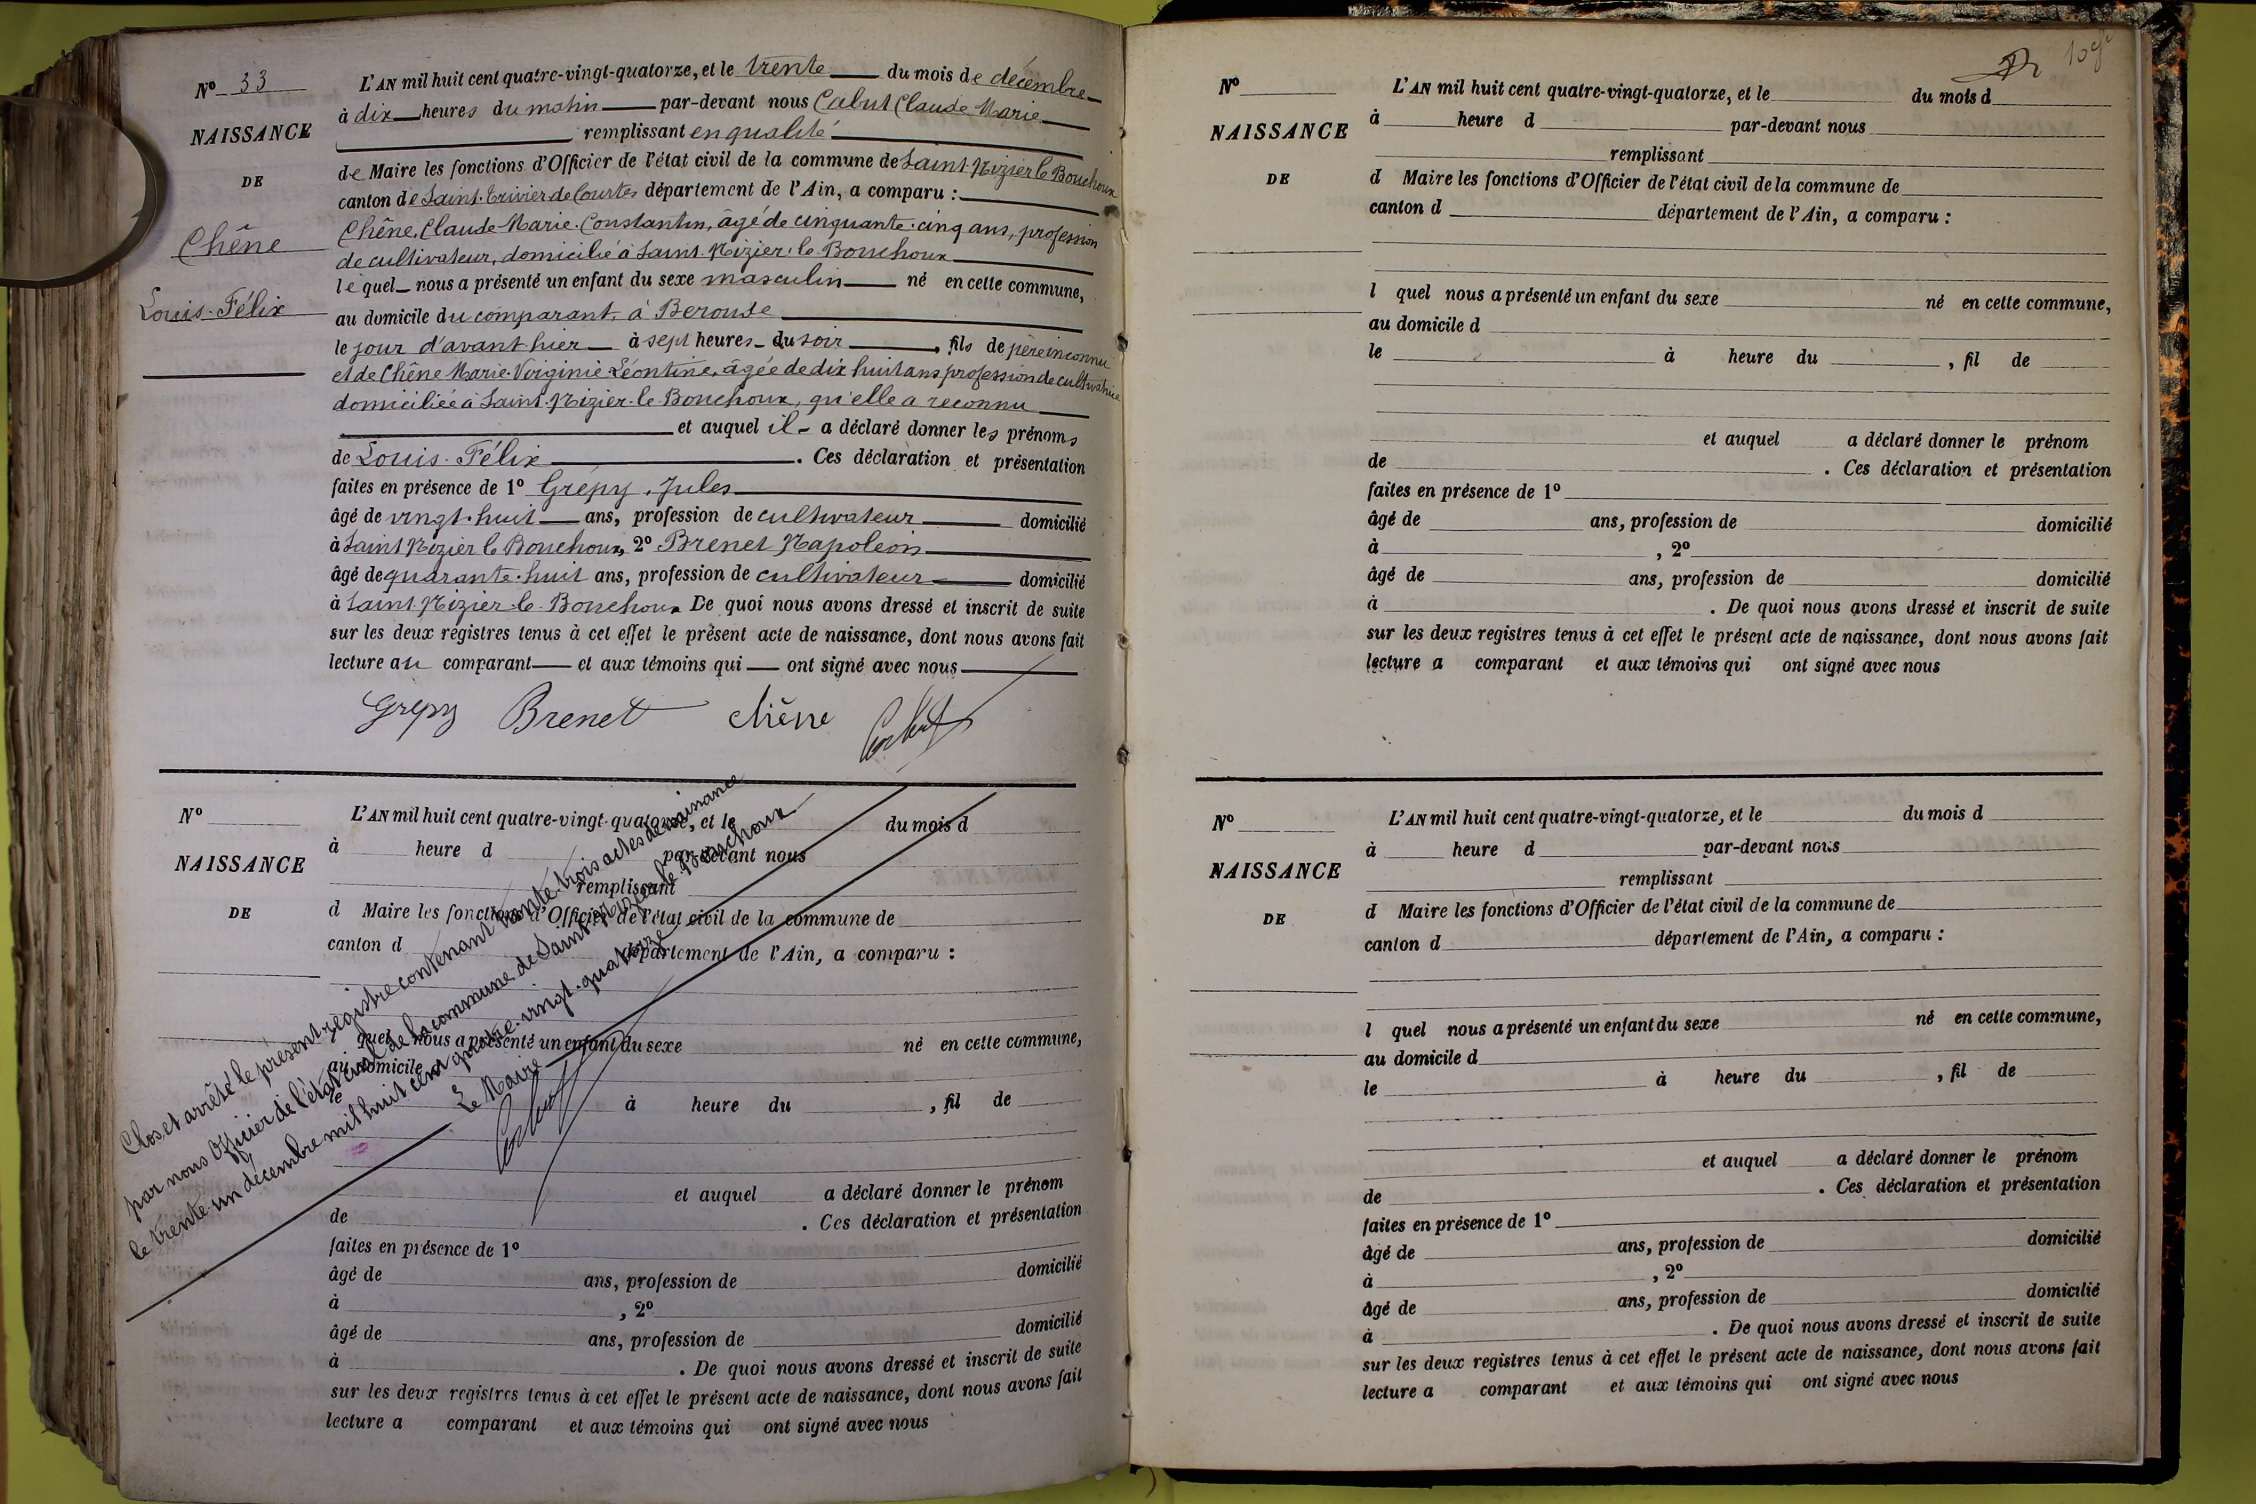 Nº 33
NAISSANCE
DE
Chêne
Louis-Félix
L'AN mil huit cent quatre-vingt-quatorze, et le trente du mois de décembre
à dix heures du matin par-devant nous Cabut Claude Marie
remplissant en qualité
de Maire les fonctions d'Officier de l'état civil de la commune de Saint-Nizier le Bouchoux
canton de Saint-Trivier de Courtes département de l'Ain, a comparu :
Chêne, Claude-Marie-Constantin, âgé de cinquante-cinq ans, profession
de cultivateur, domicilié à Saint-Nizier-le-Bouchoux
lequel nous a présenté un enfant du sexe masculin né en cette commune,
au domicile du comparant, à
le jour d'avant hier à sept heures du soir, fils de père inconnu
et de Chêne Marie-Virginie Léontine, âgée de dix huit ans profession de cultivatrice
domiciliée à Saint-Nizier-le-Bouchoux, qu'elle a reconnu
et auquel il a déclaré donner les prénoms
de Louis-Félix. Ces déclaration et présentation
faites en présence de 1º Grépy, Jules
âgé de vingt-huit ans, profession de cultivateur domicilié
à Saint Nizier le Bouchoux, 2º Brenet Napoléon
âgé de quarante-huit ans, profession de cultivateur domicilié
à Saint-Nizier-le-Bouchoux De quoi nous avons dressé et inscrit de suite
sur les deux registres tenus à cet effet le présent acte de naissance, dont nous avons fait
lecture au comparant et aux témoins qui ont signé avec nous
Grépy Brenet chêne Cabut
Nº
NAISSANCE
DE
L'AN mil huit cent quatre-vingt-quatorze, et le du mois d
à heure d par-devant nous
remplissant
d Maire les fonctions d'Officier de l'état civil de la commune de
canton d département de l'Ain, a comparu :
quel nous a présenté un enfant du sexe né en cette commune,
au domicile
le à heure du , fil de
et auquel a déclaré donner le prénom
de . Ces déclaration et présentation
faites en présence de 1º
âgé de ans, profession de domicilié
à , 2º
âgé de ans, profession de domicilié
à . De quoi nous avons dressé et inscrit de suite
sur les deux registres tenus à cet effet le présent acte de naissance, dont nous avons fait
lecture a comparant et aux témoins qui ont signé avec nous
Clos et arrêté le présent registre contenant trente-trois actes de naissance
par nous Officier de l'état civil de la commune de Saint-Nizier-le-Bouchoux
le trente-un décembre mil huit cent quatre-vingt-quatorze
Le Maire
Cabut
Nº
NAISSANCE
DE
L'AN mil huit cent quatre-vingt-quatorze, et le du mois d
à heure d par-devant nous
remplissant
d Maire les fonctions d'Officier de l'état civil de la commune de
canton d département de l'Ain, a comparu :
l quel nous a présenté un enfant du sexe né en cette commune,
au domicile d
le à heure du , fil de
et auquel a déclaré donner le prénom
de . Ces déclaration et présentation
faites en présence de 1º
âgé de ans, profession de domicilié
à , 2º
âgé de ans, profession de domicilié
à . De quoi nous avons dressé et inscrit de suite
sur les deux registres tenus à cet effet le présent acte de naissance, dont nous avons fait
lecture a comparant et aux témoins qui ont signé avec nous
Nº
NAISSANCE
DE
L'AN mil huit cent quatre-vingt-quatorze, et le du mois d
à heure d par-devant nous
remplissant
d Maire les fonctions d'Officier de l'état civil de la commune de
canton d département de l'Ain, a comparu :
l quel nous a présenté un enfant du sexe né en cette commune,
au domicile d
le à heure du , fil de
et auquel a déclaré donner le prénom
de . Ces déclaration et présentation
faites en présence de 1º
âgé de ans, profession de domicilié
à , 2º
âgé de ans, profession de domicilié
à . De quoi nous avons dressé et inscrit de suite
sur les deux registres tenus à cet effet le présent acte de naissance, dont nous avons fait
lecture a comparant et aux témoins qui ont signé avec nous